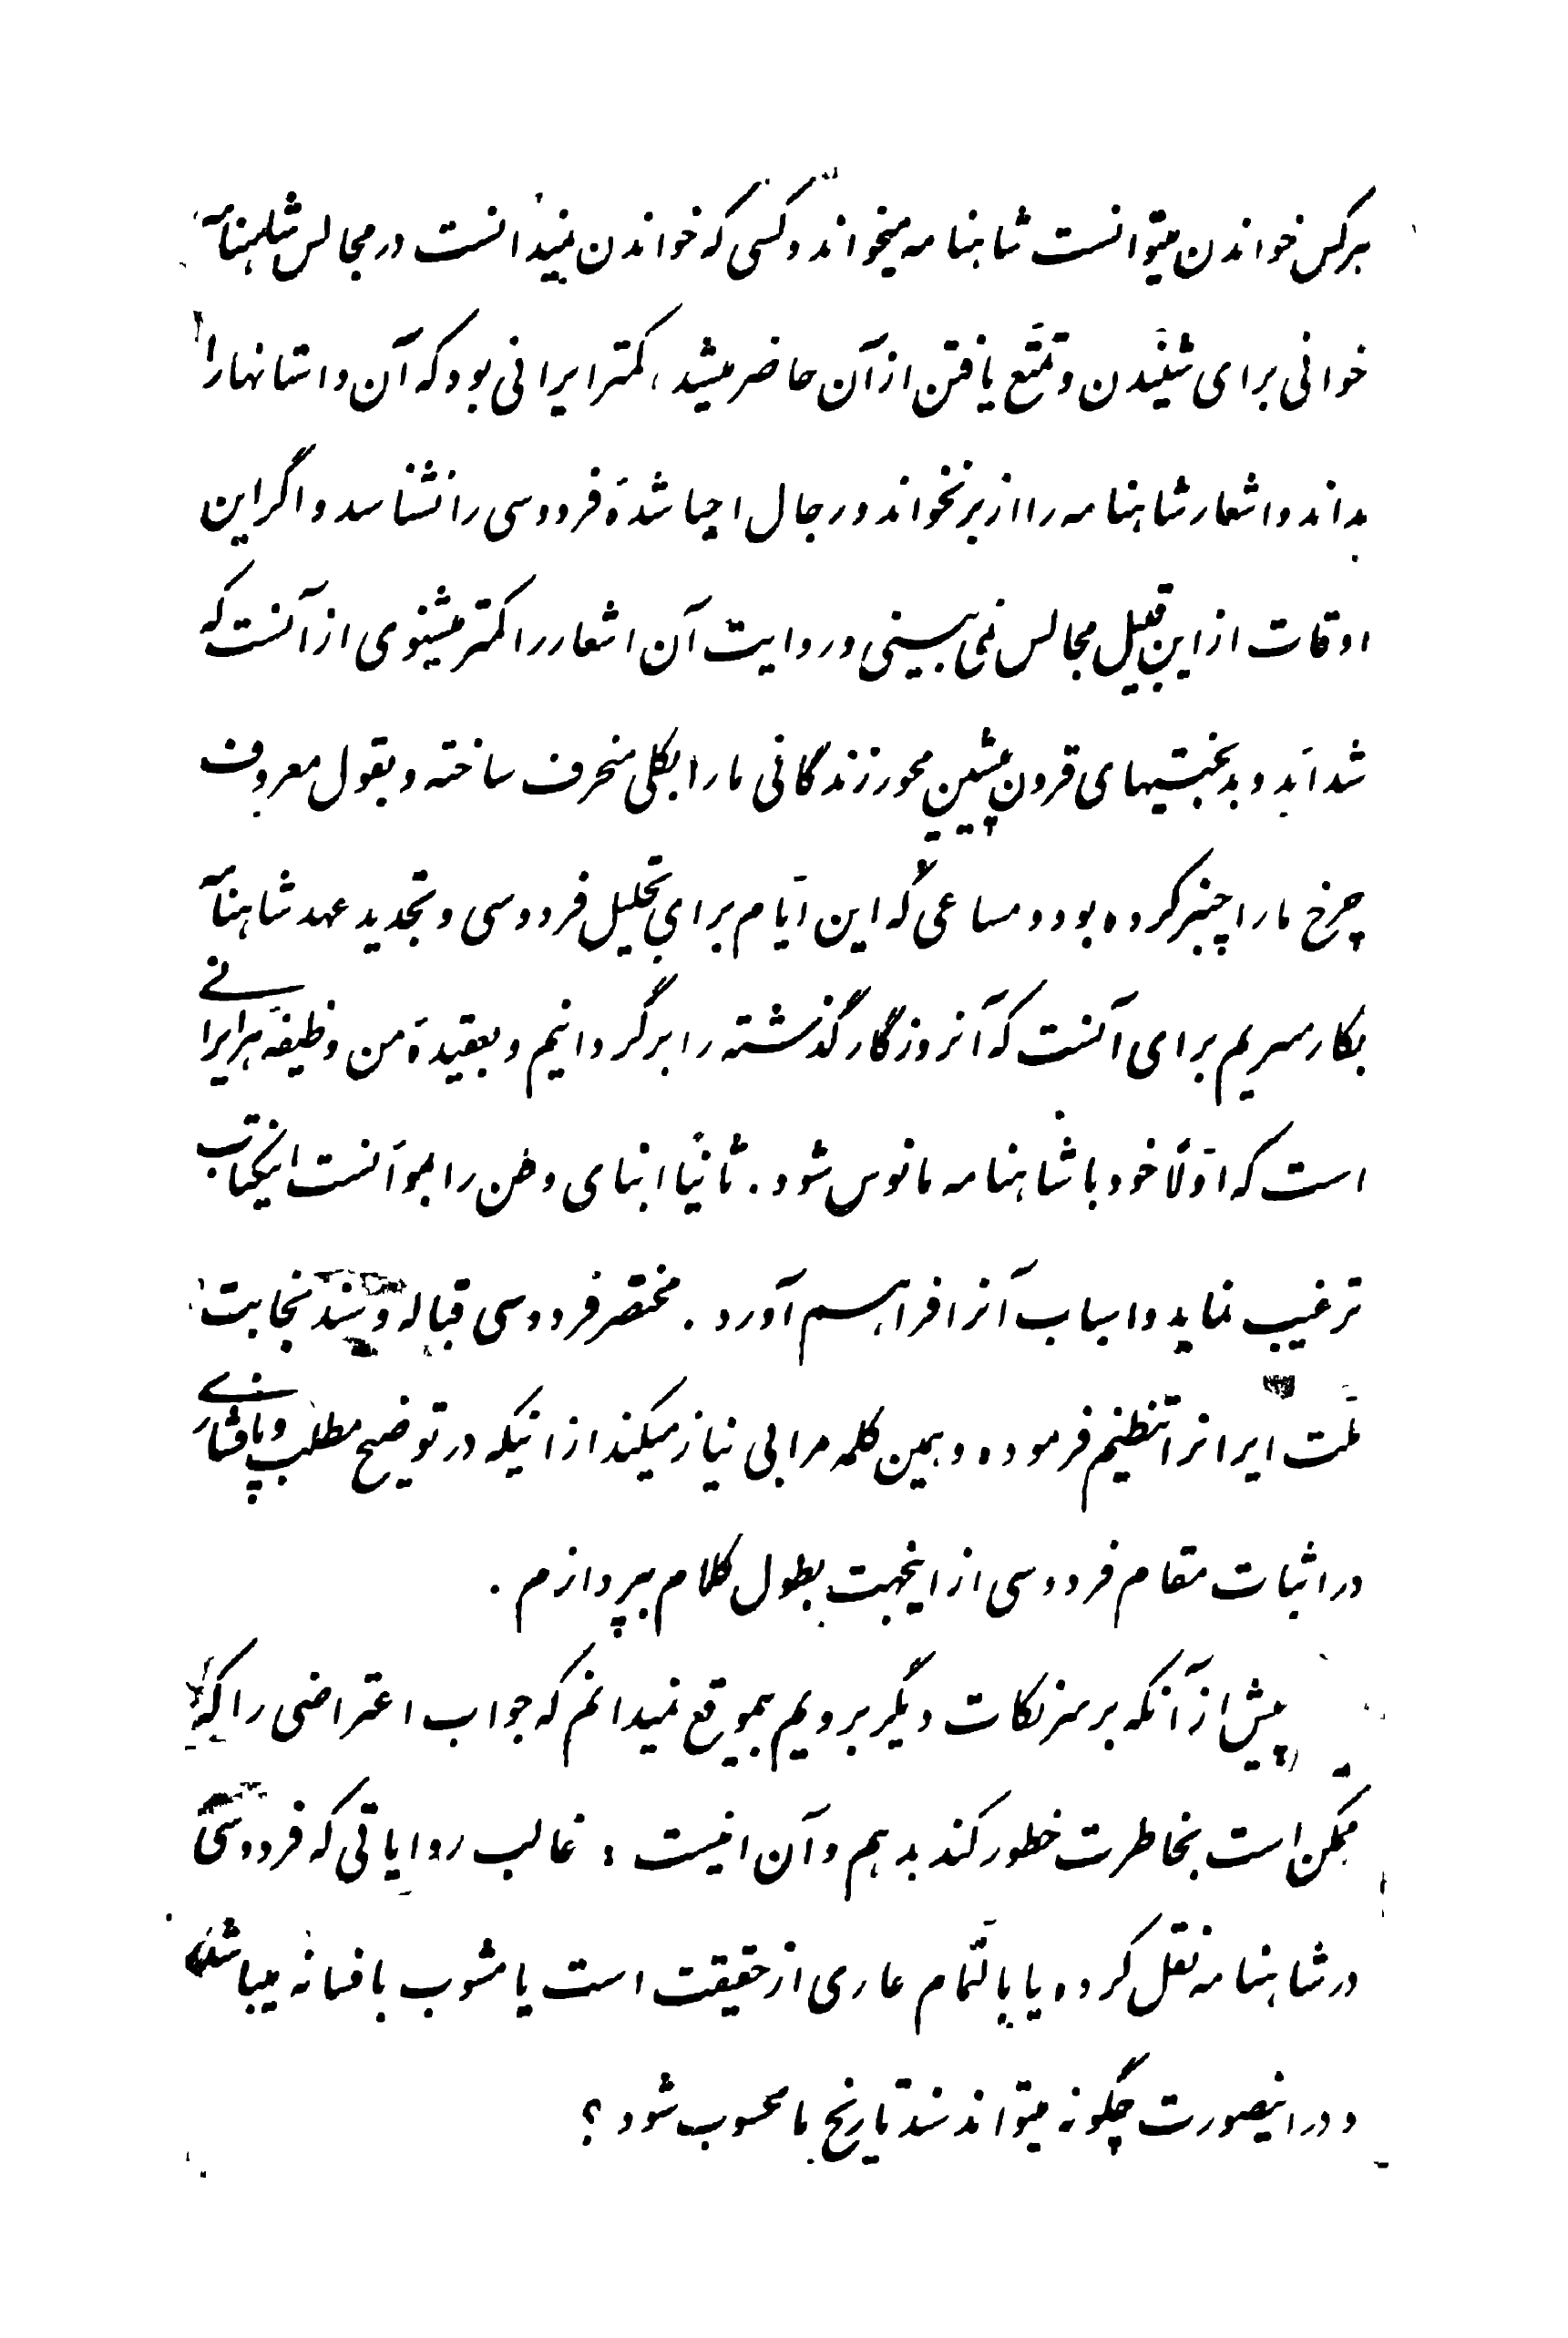 هرکس خواندن میتوانست شاهنامه میخواند و کسی که خواندن نمیدانست در مجالس شاهنامه
خوانی برای شنیدن و تمتّع یافتن از آن حاضر میشد، کمتر ایرانی بود که آن داستانها را
بداند و اشعار شاهنامه را از بر نخواند و رجال احیا شدهٔ فردوسی را نشناسد و اگر این
اوقات از این قبیل مجالس نمی بینی و روایت آن اشعار را کمتر میشنوی از آنست که
شدائد و بدبختیهای قرون پیشین محور زندگانی ما را بکلی منحرف ساخته و بقول معروف
چرخ ما را چنبر کرده بود و مساعی که این ایّام برای تجلیل فردوسی و تجدید عهد شاهنامه
بکار میبریم برای آنست که آنروزگار گذشته را برگردانیم و بعقیدهٔ من وظیفهٔ هر ایرانی
است که اوّلاً خود با شاهنامه مأنوس شود. ثانیاً ابنای وطن را بموآنست اینکتاب
ترغیب نماید و اسباب آنرا فراهم آورد. مختصر فردوسی قباله و سند نجابت
ملّت ایرانرا تنظیم فرموده و همین کلمه مرا بی نیاز میکند از اینکه در توضیح مطلب و پافشاری
در اثبات مقام فردوسی از اینجهت بطول کلام بپردازم.
پیش از آنکه بر سر نکات دیگر برویم بیموقع نمیدانم که جواب اعتراضی را که
ممکن است بخاطرت خطور کند بدهم و آن اینست: غالب روایاتی که فردوسی
در شاهنامه نقل کرده یا بالتّمام عاری از حقیقت است یا مشوب بافسانه میباشد
و در اینصورت چگونه میتواند سند تاریخ ما محسوب شود؟